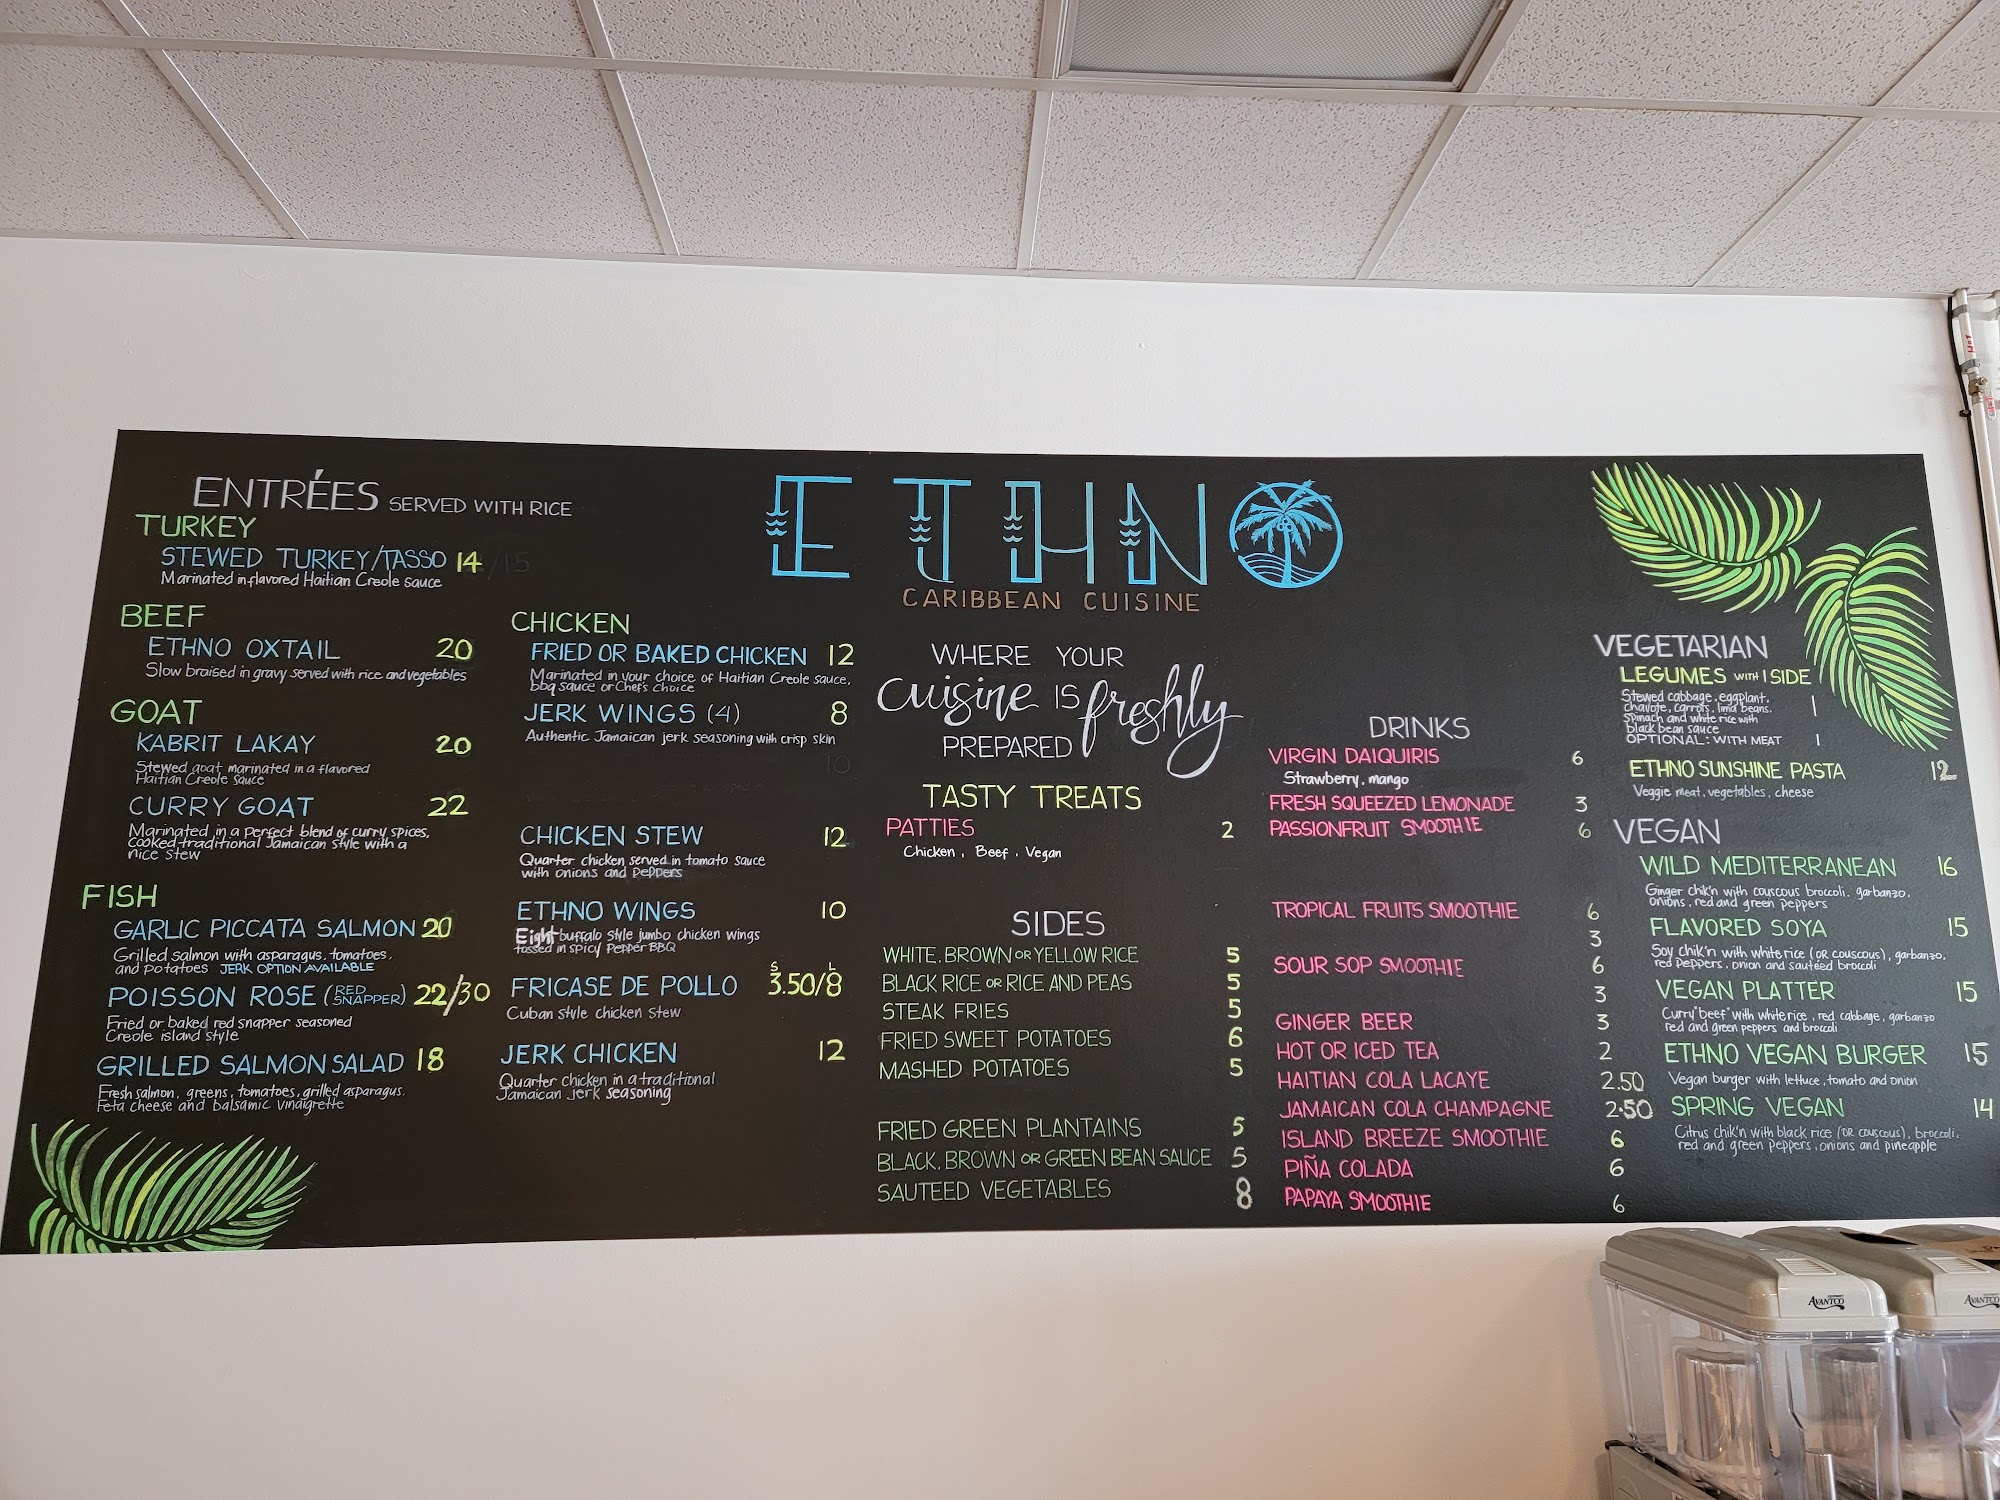 ENTRÉES SERVED WITH RICE
TURKEY
STEWED TURKEY/TASSO 14 /15
Marinated in flavored Haitian Creole sauce
BEEF
ETHNO OXTAIL 20
Slow braised in gravy served with rice and vegetables
GOAT
KABRIT LAKAY 20
Stewed goat marinated in a flavored
Haitian Creole sauce
CURRY GOAT 22
Marinated in a perfect blend of curry spices,
cooked traditional Jamaican style with a
nice stew
FISH
GARLIC PICCATA SALMON 20
Grilled salmon with asparagus, tomatoes,
and potatoes JERK OPTION AVAILABLE
POISSON ROSE (RED SNAPPER) 22/30
Fried or baked red snapper seasoned
Creole island style
GRILLED SALMON SALAD 18
Fresh salmon, greens, tomatoes, grilled asparagus.
Feta cheese and balsamic vinaigrette
CHICKEN
FRIED OR BAKED CHICKEN 12
Marinated in your choice of Haitian Creole sauce,
bbq sauce or Chef's Choice
JERK WINGS (4) 8
Authentic Jamaican jerk seasoning with crisp skin
10
CHICKEN STEW 12
Quarter chicken served in tomato sauce
with onions and peppers
ETHNO WINGS 10
Eight buffalo style jumbo chicken wings
tossed in spicy Pepper BBQ
S L
FRICASE DE POLLO 3.50/8
Cuban style chicken stew
JERK CHICKEN 12
Quarter chicken in a traditional
Jamaican Jerk seasoning
ETHNO
CARIBBEAN CUISINE
WHERE YOUR
cuisine IS freshly
PREPARED
TASTY TREATS
PATTIES 2
Chicken, Beef, Vegan
SIDES
WHITE, BROWN OR YELLOW RICE 5
BLACK RICE OR RICE AND PEAS 5
STEAK FRIES 5
FRIED SWEET POTATOES 6
MASHED POTATOES 5
FRIED GREEN PLANTAINS 5
BLACK, BROWN OR GREEN BEAN SAUCE 5
SAUTEED VEGETABLES 8
DRINKS
VIRGIN DAIQUIRIS 6
Strawberry, mango
FRESH SQUEEZED LEMONADE 3
PASSIONFRUIT SMOOTHIE 6
TROPICAL FRUITS SMOOTHIE 6
3
SOUR SOP SMOOTHIE 6
3
GINGER BEER 3
HOT OR ICED TEA 2
HAITIAN COLA LACAYE 2.50
JAMAICAN COLA CHAMPAGNE 2.50
ISLAND BREEZE SMOOTHIE 6
PIÑA COLADA 6
PAPAYA SMOOTHIE 6
VEGETARIAN
LEGUMES WITH 1 SIDE
Stewed cabbage, eggplant,
chayote, carrots, lima beans,
spinach and white rice with
black bean sauce
OPTIONAL: WITH MEAT
ETHNO SUNSHINE PASTA 12
Veggie meat, vegetables, cheese
VEGAN
WILD MEDITERRANEAN 16
Ginger chik'n with couscous broccoli, garbanzo,
onions, red and green peppers
FLAVORED SOYA 15
Soy chik'n with white rice (OR couscous), garbanzo,
red peppers, onion and sautéed broccoli
VEGAN PLATTER 15
Curry "beef" with white rice, red cabbage, garbanzo
red and green peppers and broccoli
ETHNO VEGAN BURGER 15
Vegan burger with lettuce, tomato and onion
SPRING VEGAN 14
Citrus chik'n with black rice (OR couscous), broccoli,
red and green peppers, onions and pineapple
AVANTCO
AVANTCO